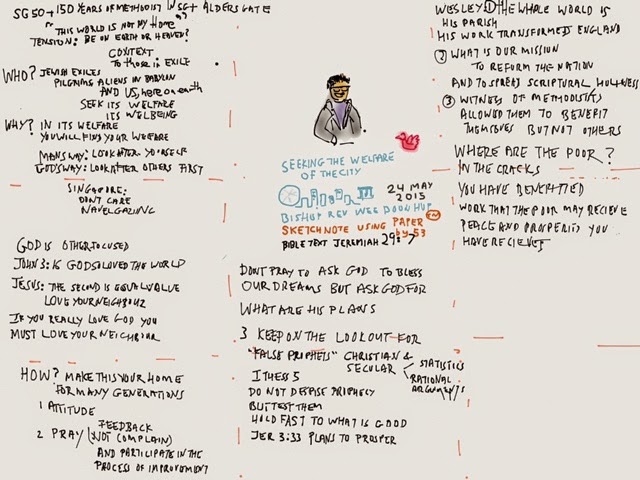 SG50 + 150 YEARS OF METHODIST IN SG + ALDERSGATE
"THIS WORLD IS NOT MY HOME"
TENSION: BE ON EARTH OR HEAVEN?
CONTEXT
To those in EXILE
WHO? JEWISH EXILES
PILGRIMS ALIENS IN BABYLON
AND US, here on earth
SEEK ITS WELFARE
ITS WELBEING
WHY? IN ITS WELFARE
YOU WILL FIND YOUR WELFARE
MAN'S WAY: LOOK AFTER YOURSELF
GOD'S WAY: LOOK AFTER OTHERS FIRST
SINGAPORE:
DON'T CARE
NAVEL GAZING
GOD IS OTHER FOCUSED
JOHN 3:16 GOD SO LOVED THE WORLD
JESUS: THE SECOND IS EQUAL VALUE
LOVE YOUR NEIGHBOUR
IF YOU REALLY LOVE GOD YOU
MUST LOVE YOUR NEIGHBOUR
HOW? MAKE THIS YOUR HOME
FOR MANY GENERATIONS
1 ATTITUDE
2 PRAY (FEEDBACK
NOT COMPLAIN)
AND PARTICIPATE IN THE
PROCESS OF IMPROVEMENT
SEEKING THE WELFARE
OF THE CITY
24 MAY
2015
BISHOP REV WEE BOON HUP
SKETCHNOTE USING PAPER TM
by 53
BIBLE TEXT JEREMIAH 29:7
DON'T PRAY TO ASK GOD TO BLESS
OUR DREAMS BUT ASK GOD FOR
WHAT ARE HIS PLANS
3 KEEP ON THE LOOKOUT FOR
"FALSE PROPHETS" CHRISTIAN &
SECULAR
STATISTICS
RATIONAL
ARGUMENTS
1 THESS 5
DO NOT DESPISE PROPHECY
BUT TEST THEM
HOLD FAST TO WHAT IS GOOD
JER 3:33 PLANS TO PROSPER
WESLEY ① THE WHOLE WORLD IS
HIS PARISH
HIS WORK TRANSFORMED ENGLAND
② WHAT IS OUR MISSION
TO REFORM THE NATION
AND TO SPREAD SCRIPTURAL HOLINESS
③ WITNESS OF METHODISTS
ALLOWED THEM TO BENEFIT
THEMSELVES BUT NOT OTHERS
WHERE ARE THE POOR?
IN THE CRACKS
YOU HAVE BENEFITTED
WORK THAT THE POOR MAY RECIEVE
PEACE AND PROSPERITY YOU
HAVE RECIEVED